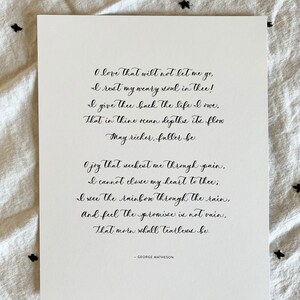 O love that wilt not let me go,
I rest my weary soul in thee!
I give thee back the life I owe,
That in thine ocean depths its flow
May richer, fuller be
O joy that seekest me through pain,
I cannot close my heart to thee;
I see the rainbow through the rain,
And feel the promise is not vain,
That morn shall tearless be
- GEORGE MATHESON